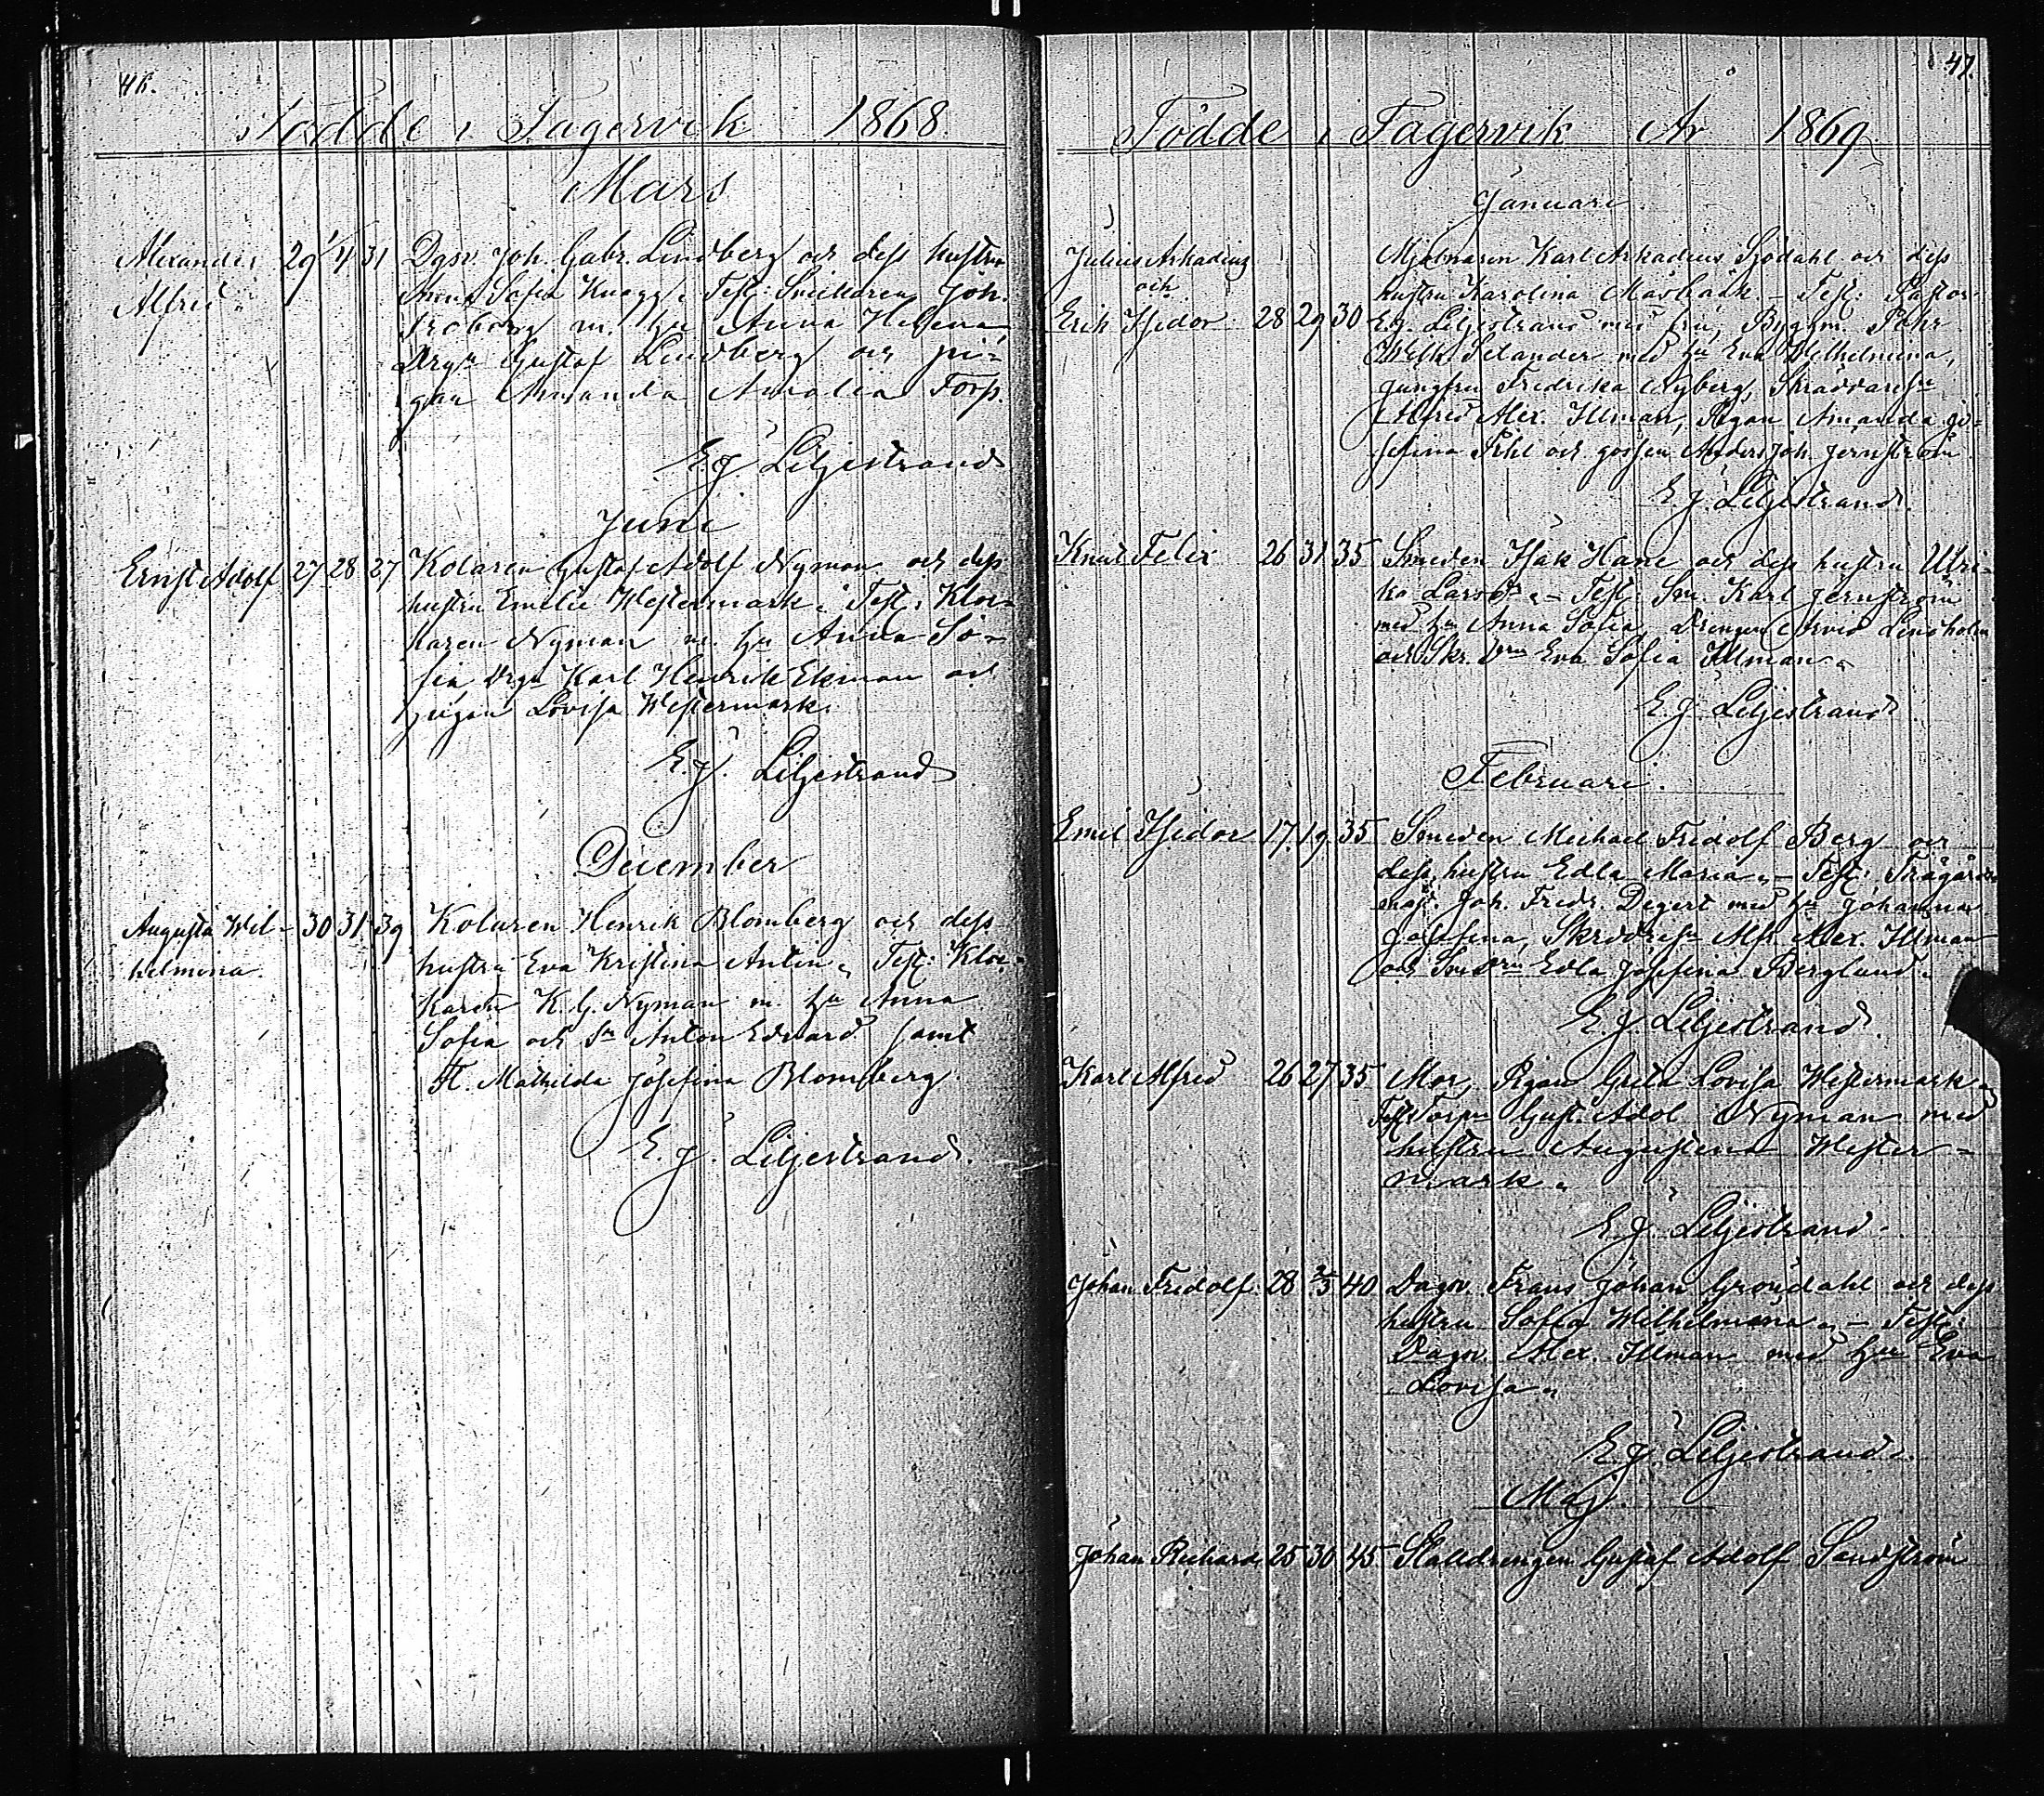 46.
Födde i Fagervik 1868.
Mars
Alexander 29 1/4 31 Dagsv. Joh. Gabr. Lindberg och dess hustru
Alfred. Anna Sofia Knagg. Test: Joh.
Iroborg m. hu Anna Helena
Drgn Gustaf Lindberg och pi-
gan Amanda Amalia Forss.
E.J. Liljestrand
Juni
Ernst Adolf 27 28 27 Kolaren Gustaf Adolf Nyman och dess
hustru Emelie Westermark. Test: Kloc-
karen Nyman m. hu Anna So-
fia Drgn Karl Henrik Ekman och
pigan Lovisa Westermark.
E.J. Liljestrand
December
Augusta Wil- 30 31 39 Kolaren Henrik Blomberg och dess
helmina. hustru Eva Kristina Antin. Test: Kloc-
karen K. G. Nyman m. hu Anna
Sofia och Sn Anton Edvard samt
Fl. Mathilda Josefina Blomberg
E.J. Liljestrand.
47.
Födde i Fagervik År 1869
Januari
Julius Arkadius Mjölnaren Karl Arkadius Sjödahl och dess
och hustru Karolina Måsbäck. – Test: Pastor
Erik Isidor 28 29 30 E.J. Liljestrand med fru, Byggm.
Wilh. Selander med hu Eva Wilhelmina,
Jungfru Fredrika Nyberg, Skräddaresn
Alfred Alex. Illman, Pgan Amanda Jo-
sefina och gossen Anders Joh. Jernström
E.J. Liljestrand.
Knut Felix 26 31 35 Smeden Isak Hane och dess hustru Ulri-
ka Larsdr. – Test: Sm. Karl Jernström
med hu Anna Sofia, Drengen Arvid Lindholm
och Skr. Drn Eva Sofia Illman.
E.J. Liljestrand
Februari.
Emil Isidor 17 19 35 Smeden Michael Fridolf Berg och
dess hustru Edla Maria. – Test: Trägårds
mäst. Joh. Fredr. Degert med hu Johanna
Josefina, Skrddresn Alfr. Alex. Illman
och Sm Drn Edla Josefina Berglund.
E.J. Liljestrand.
Karl Alfred 26 27 35 Mor, Pgan Greta Lovisa Westermark.
Test: Torpn Gust. Adol. Nyman med
hustru Augustina Wester-
mark.
E.J. Liljestrand.
Johan Fridolf 28 2/3 40 Dagsv. Frans Johan Gröndahl och dess
hustru Sofia Wilhelmina. – Test:
Dagsv. Alex. Illman med hu Eva
Lovisa.
E.J. Liljestrand.
Maj.
Johan Richard 25 30 45 Stalldrengen Gustaf Adolf Sandström